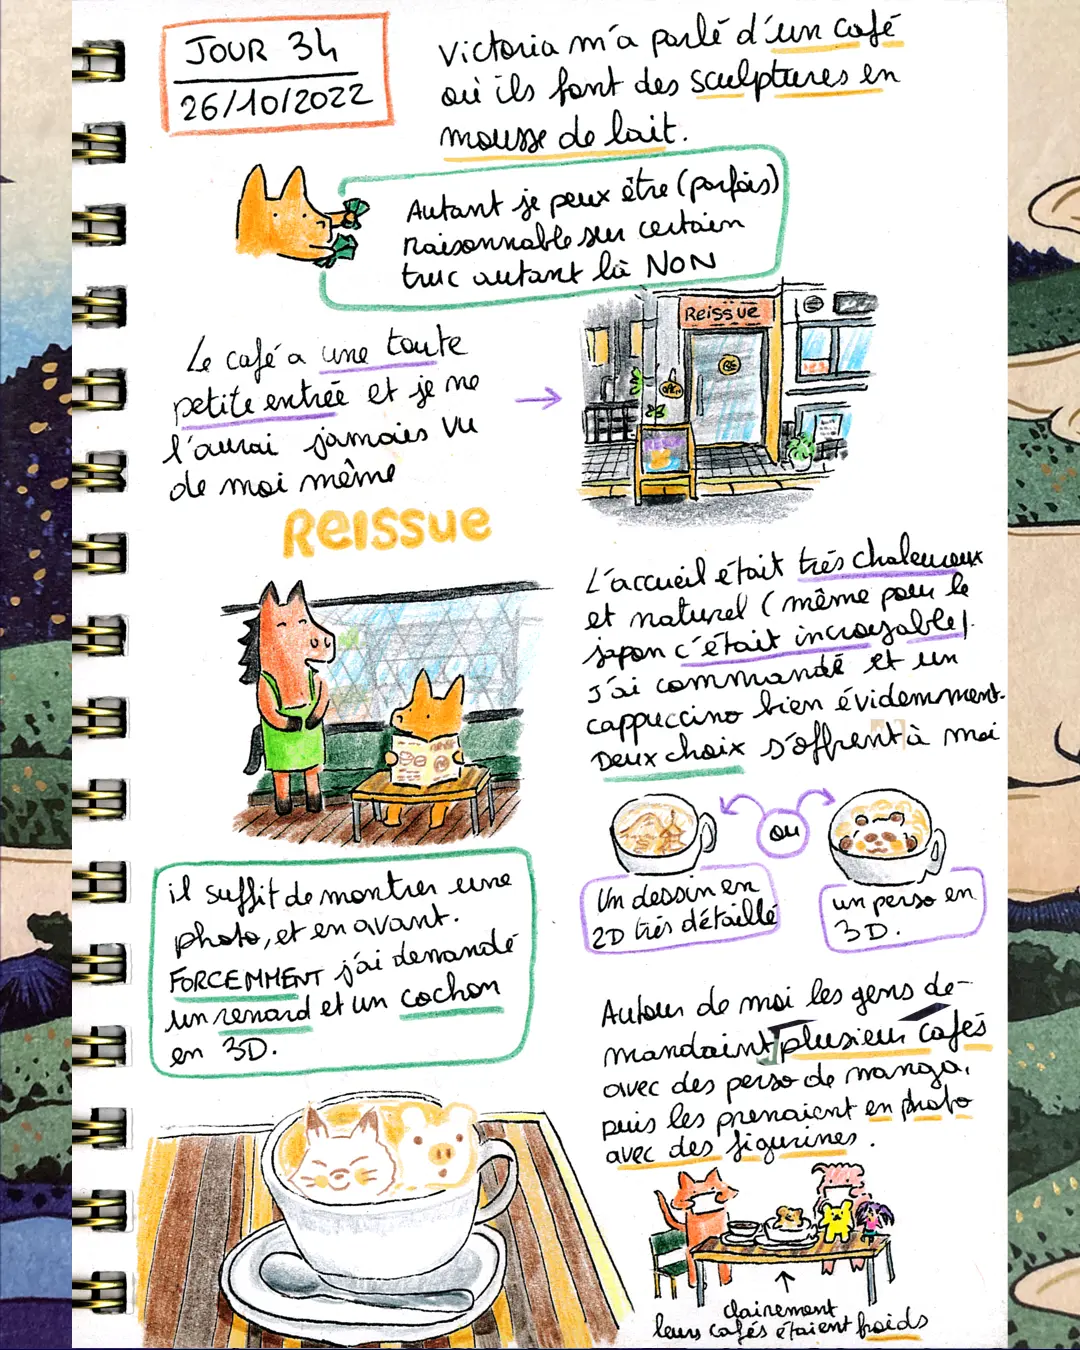 JOUR 34
26/10/2022
Victoria m'a parlé d'un café
où ils font des sculptures en
mousse de lait.
Autant je peux être (parfois)
raisonnable sur certain
truc autant là NON
Le café a une toute
petite entrée et je ne
l'aurai jamais vu
de moi même
Reissue
REISSUE
L'accueil était très chaleureux
et naturel (même pour le
japon c'était incroyable).
J'ai commandé et un
cappuccino bien évidemment.
Deux choix s'offrent à moi
ou
Un dessin en
2D très détaillé
un perso en
3D.
il suffit de montrer une
photo, et en avant.
FORCEMMENT j'ai demandé
un renard et un cochon
en 3D.
Autour de moi les gens de-
mandaint plusieur cafés
avec des perso de manga,
puis les prenaient en photo
avec des figurines.
clairement
leurs cafés étaient froids